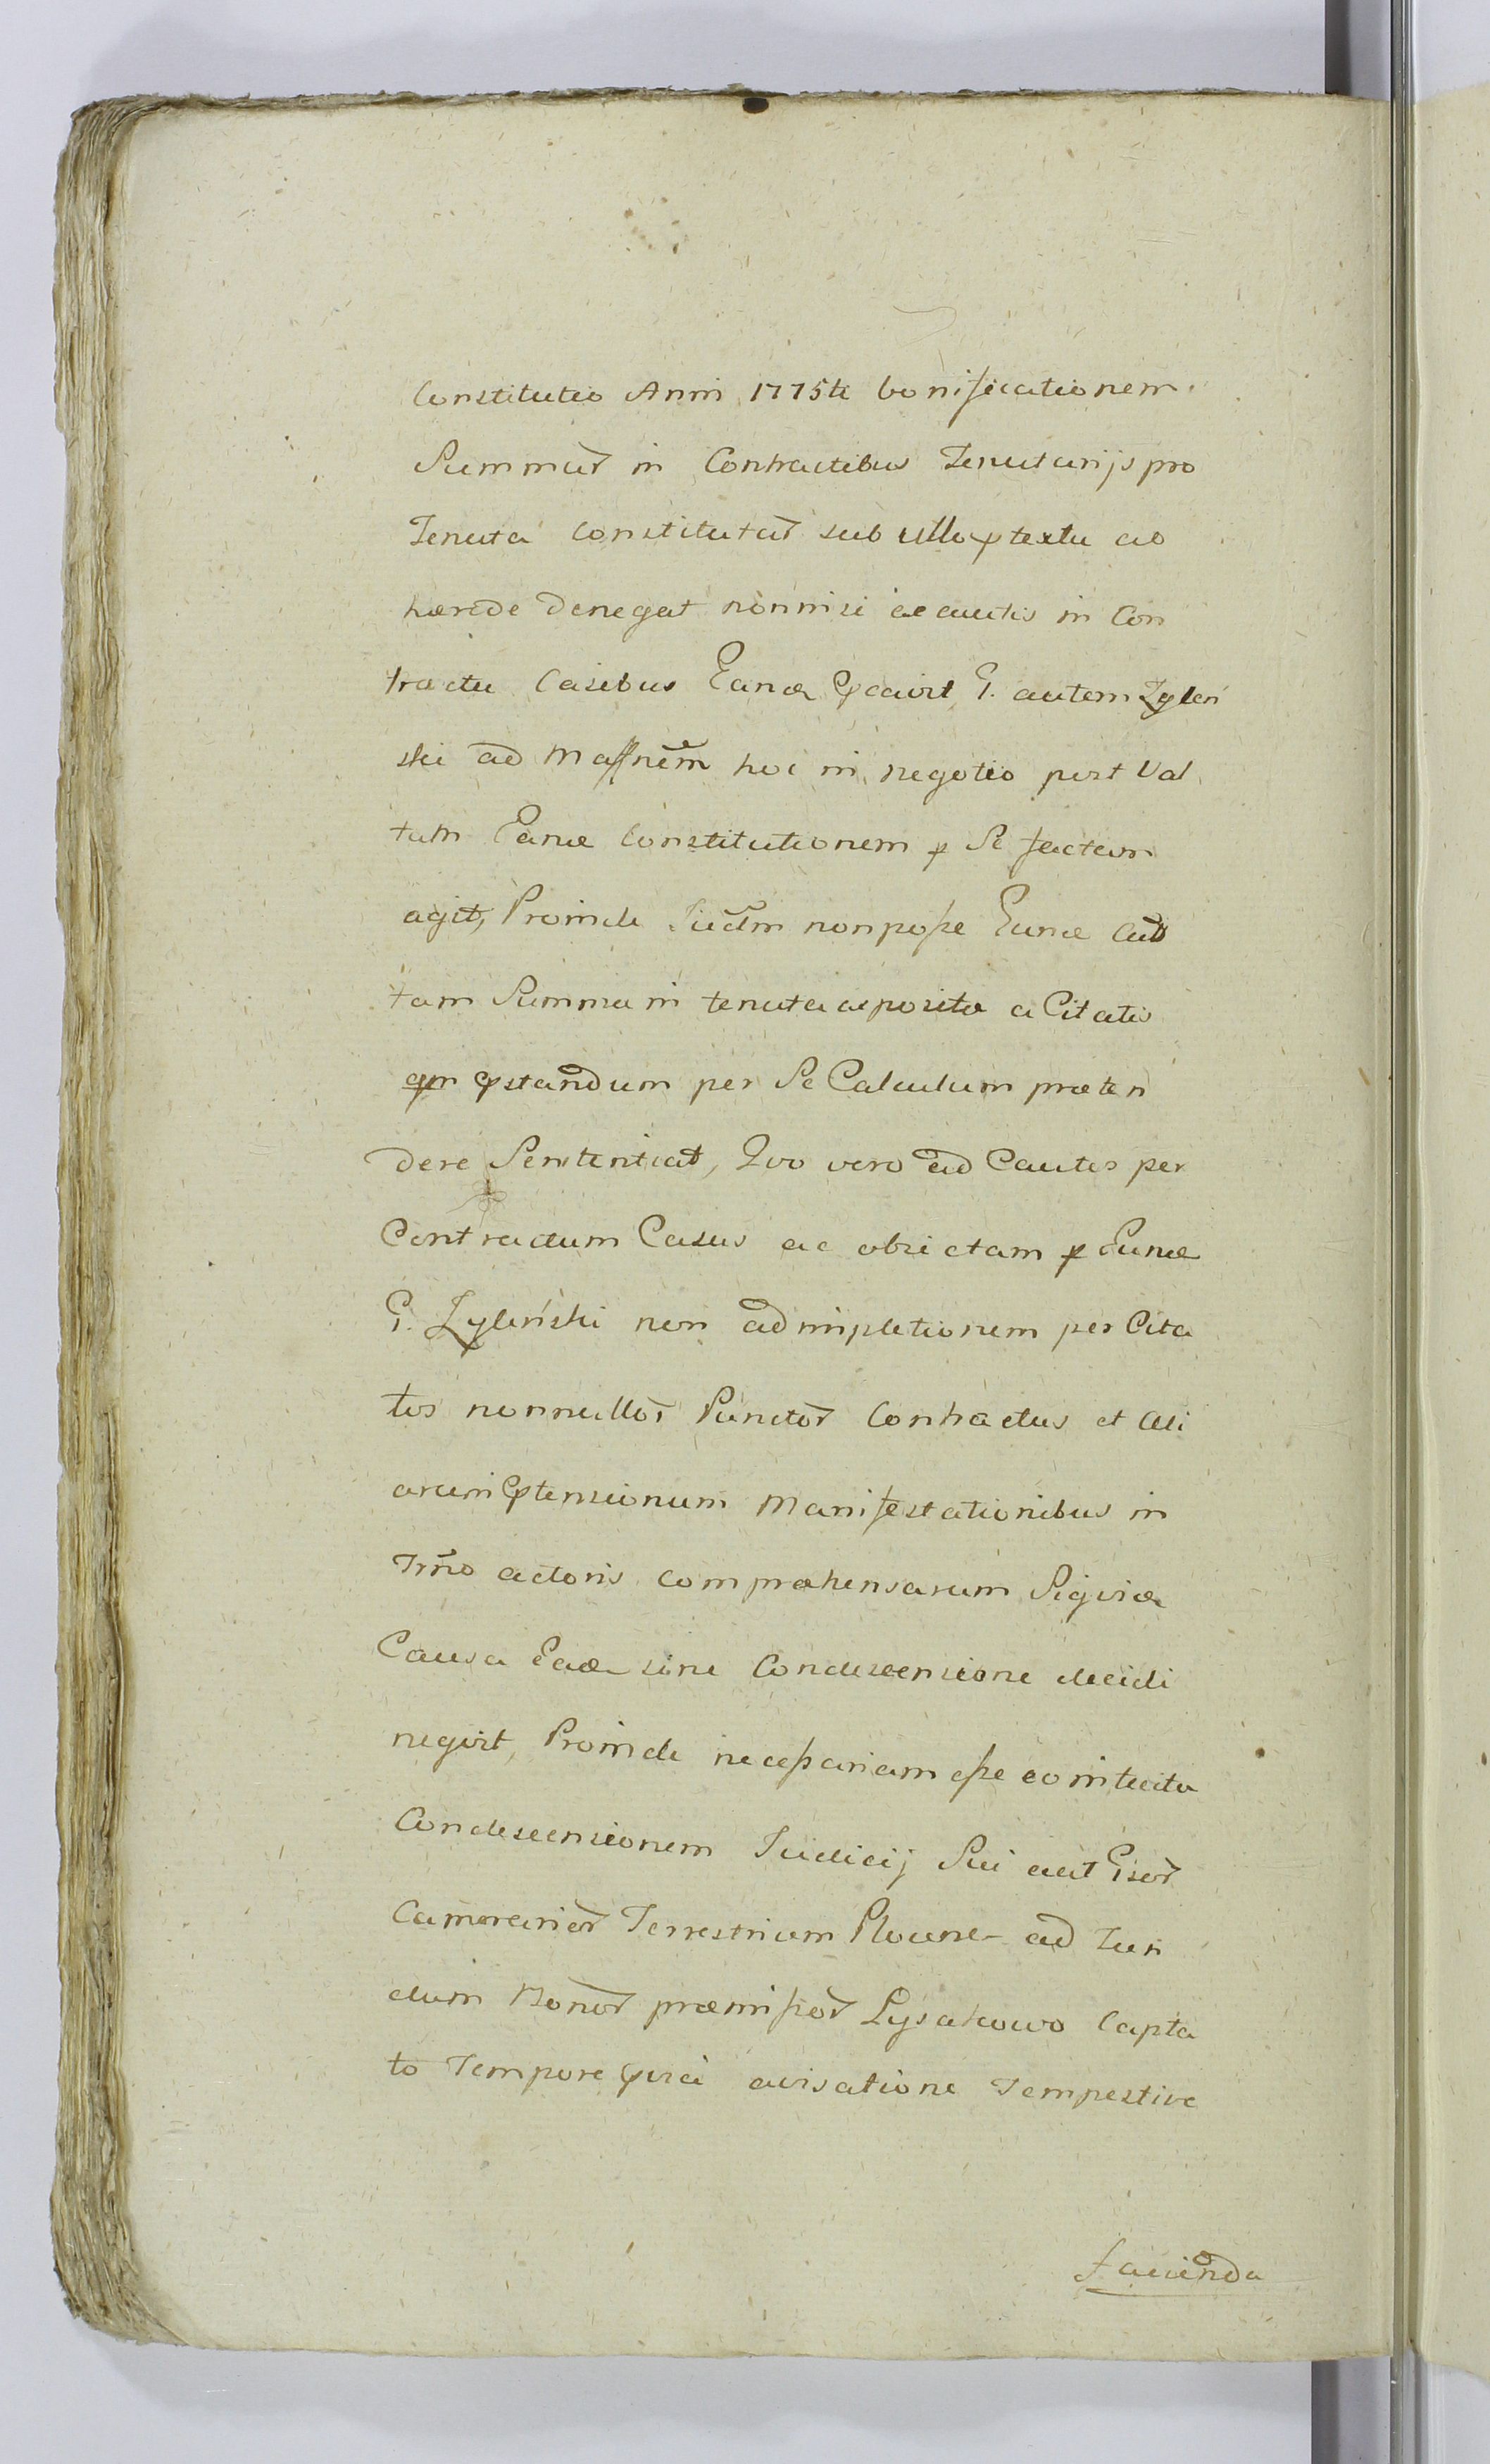 Constitutio Anni 1775ti bonificationem
Summar̃ in Contractibus Tenutarijs pro
Tenuta Constitutar̃ sub ullo ꝓtextu ab
hærede denegat nonnisi ex cautis in Con
tractu Casibus Eanæ ꝓcavit G. autem Zyleń
ski ad Massnem̃ hoc in negotio post Val
tam Eanæ Constitutionem ꝓ Se factam
agit, Proinde Iudm̃ non posse Eunæ
tam Summa in tenuta exposita a Citatis
qm ꝓstandum per Se Calculum præten
dere Sententiat, Quo vero ad Cautos per
Contractum Casus ac obiectam ꝓ Eunæ
G. Zyleński non adimpletionem per Cita
tos nonnullor̃ Punctor̃ Contractus et Ali
arum ꝓtensionum Manifestationibus in
Trño actoris compræhensarum Siqvidæ
Causa Eadæ sine Condescensione decidi
neqvit, Proinde necessariam esse eo intuitu
Condescensionem Iudicij Sui aut Gisor̃
Camerarior̃ Terrestrium Plocens- ad Fun
dum Bonor̃ præmissor̃ Lysakowo Capta
to Tempore ꝓvia avisatione Tempestive
Facienda